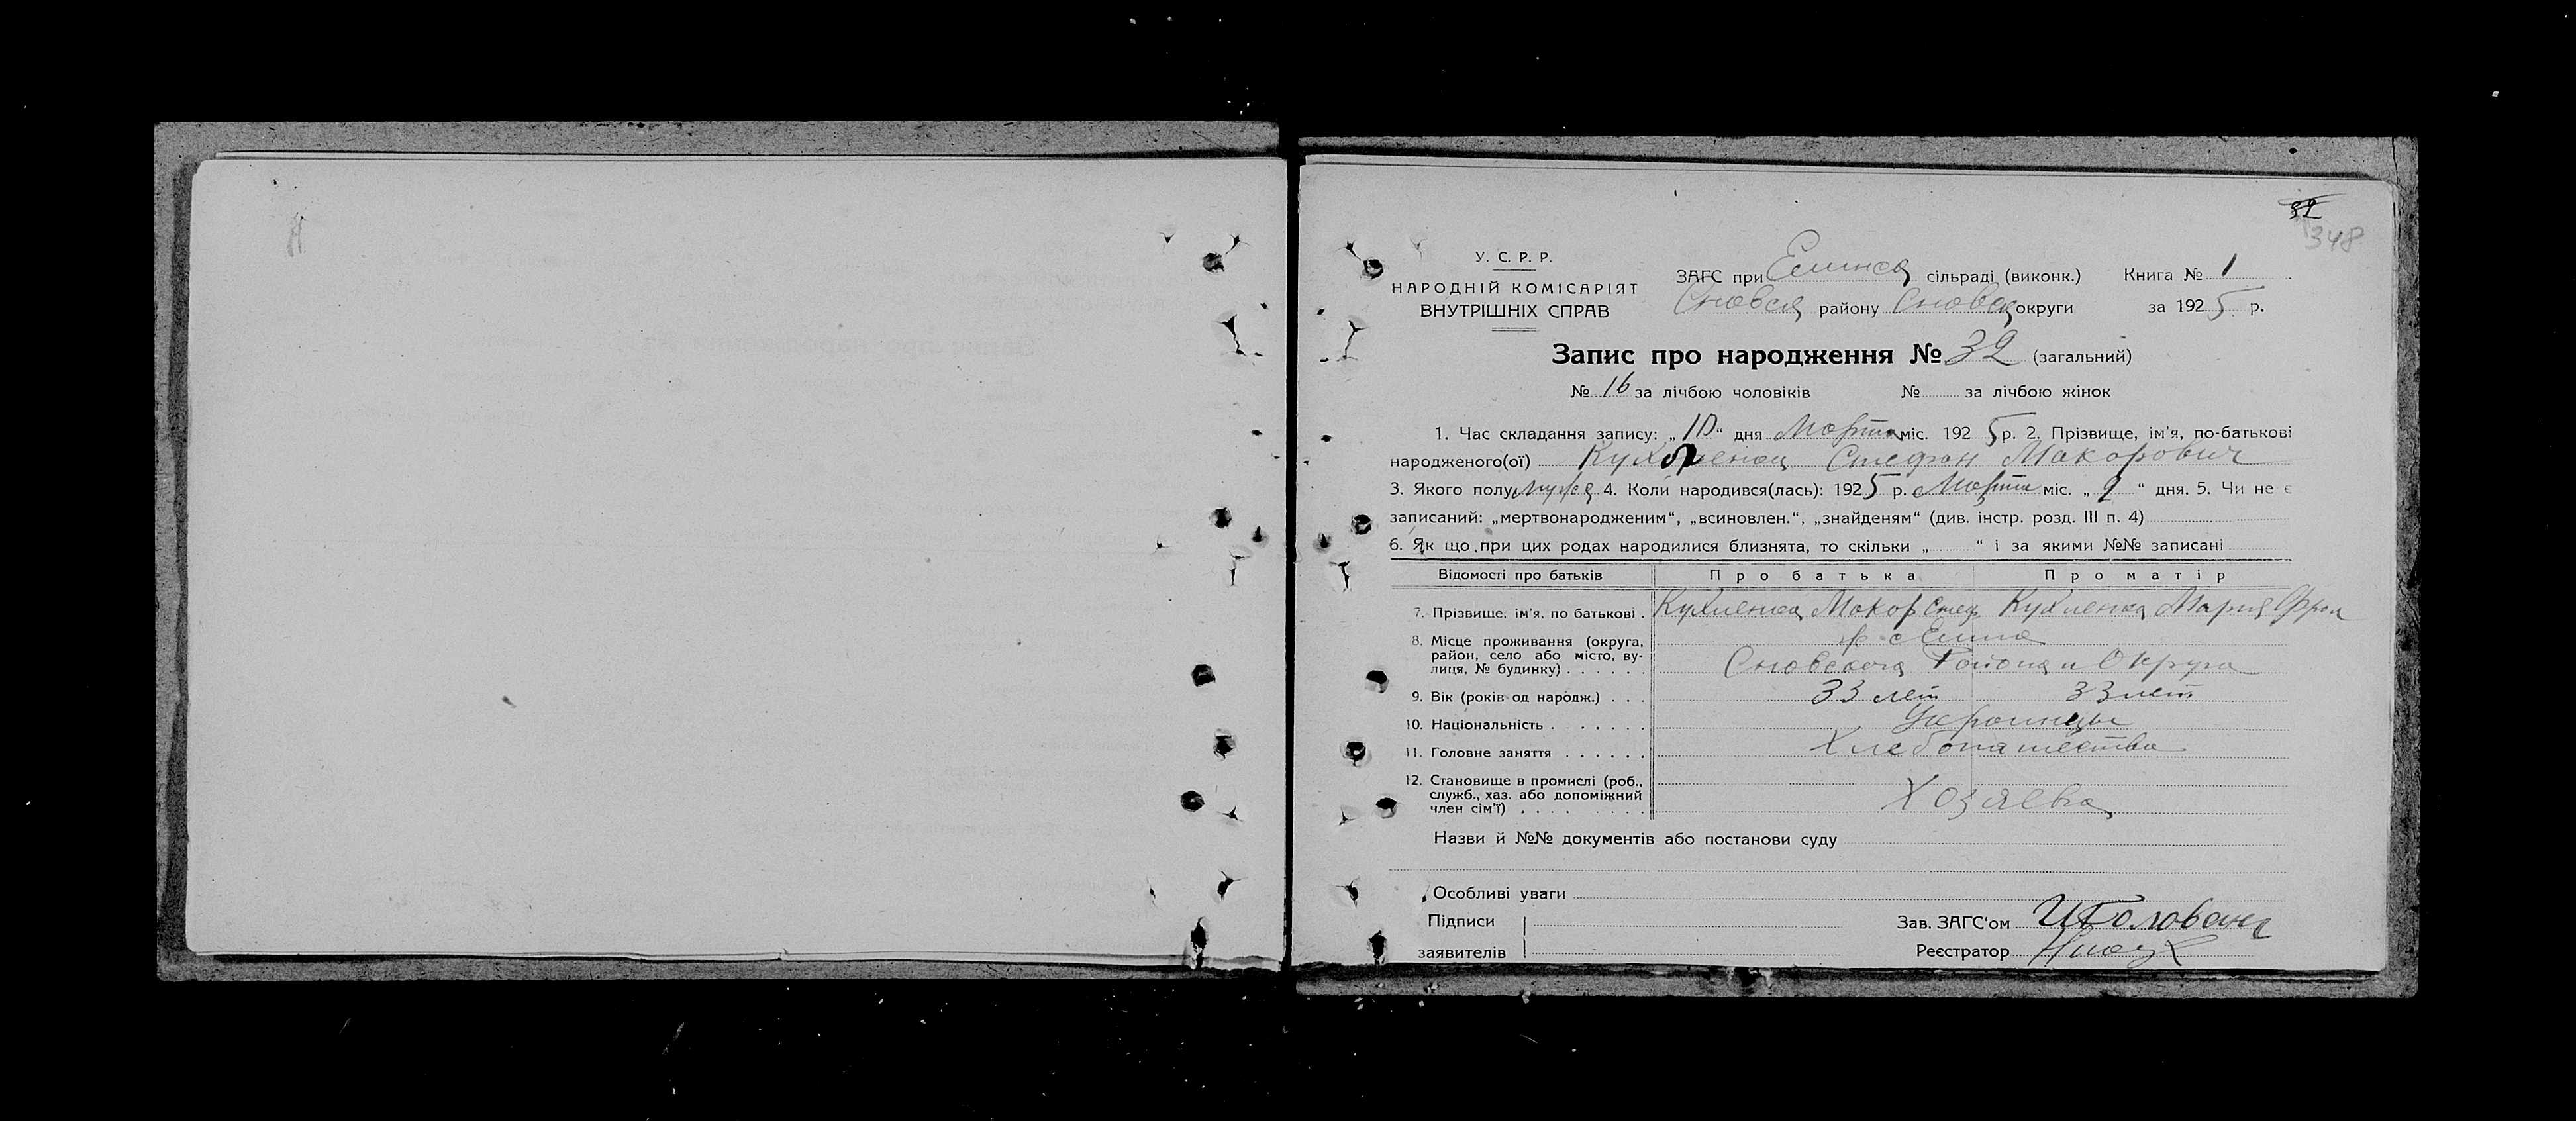 32
348
У. С. Р. Р.
НАРОДНІЙ КОМІСАРІЯТ
ВНУТРІШНІХ СПРАВ
ЗАГС при сільраді (виконк.) Книга № 1
району округи за 1925 р.
Запис про народження № 32 (загальний)
№ 16 за лічбою чоловіків № за лічбою жінок
1. Час складання запису: „10“ дня Марта міс. 1925 р. 2. Прізвище, ім'я, по-батькові
народженого(ої) Стефан Макарович
3. Якого полу 4. Коли народився(лась): 1925 р. Марта міс. „9“ дня. 5. Чи не є
записаний: „мертвонародженим“, „всиновлен.“, „знайденям“ (див. інстр. розд. III п. 4)
6. Як що при цих родах народилися близнята, то скільки „ “ і за якими №№ записані
Відомості про батьків Про батька Про матір
7. Прізвище, ім'я, по батькові Кухленка Макар Стеф Кухленка Мария Фрол
8. Місце проживання (округа, район, село або місто, вулиця, № будинку)
Сновского Района и Округа
9. Вік (років од народж.) 33 лет 33 лет
10. Національність Украинцы
11. Головне заняття Хлебопашество
12. Становище в промислі (роб., служб., хаз. або допоміжний член сім'ї) Хозяева
Назви й №№ документів або постанови суду
Особливі уваги
Підписи Зав. ЗАГС'ом
заявителів Реєстратор